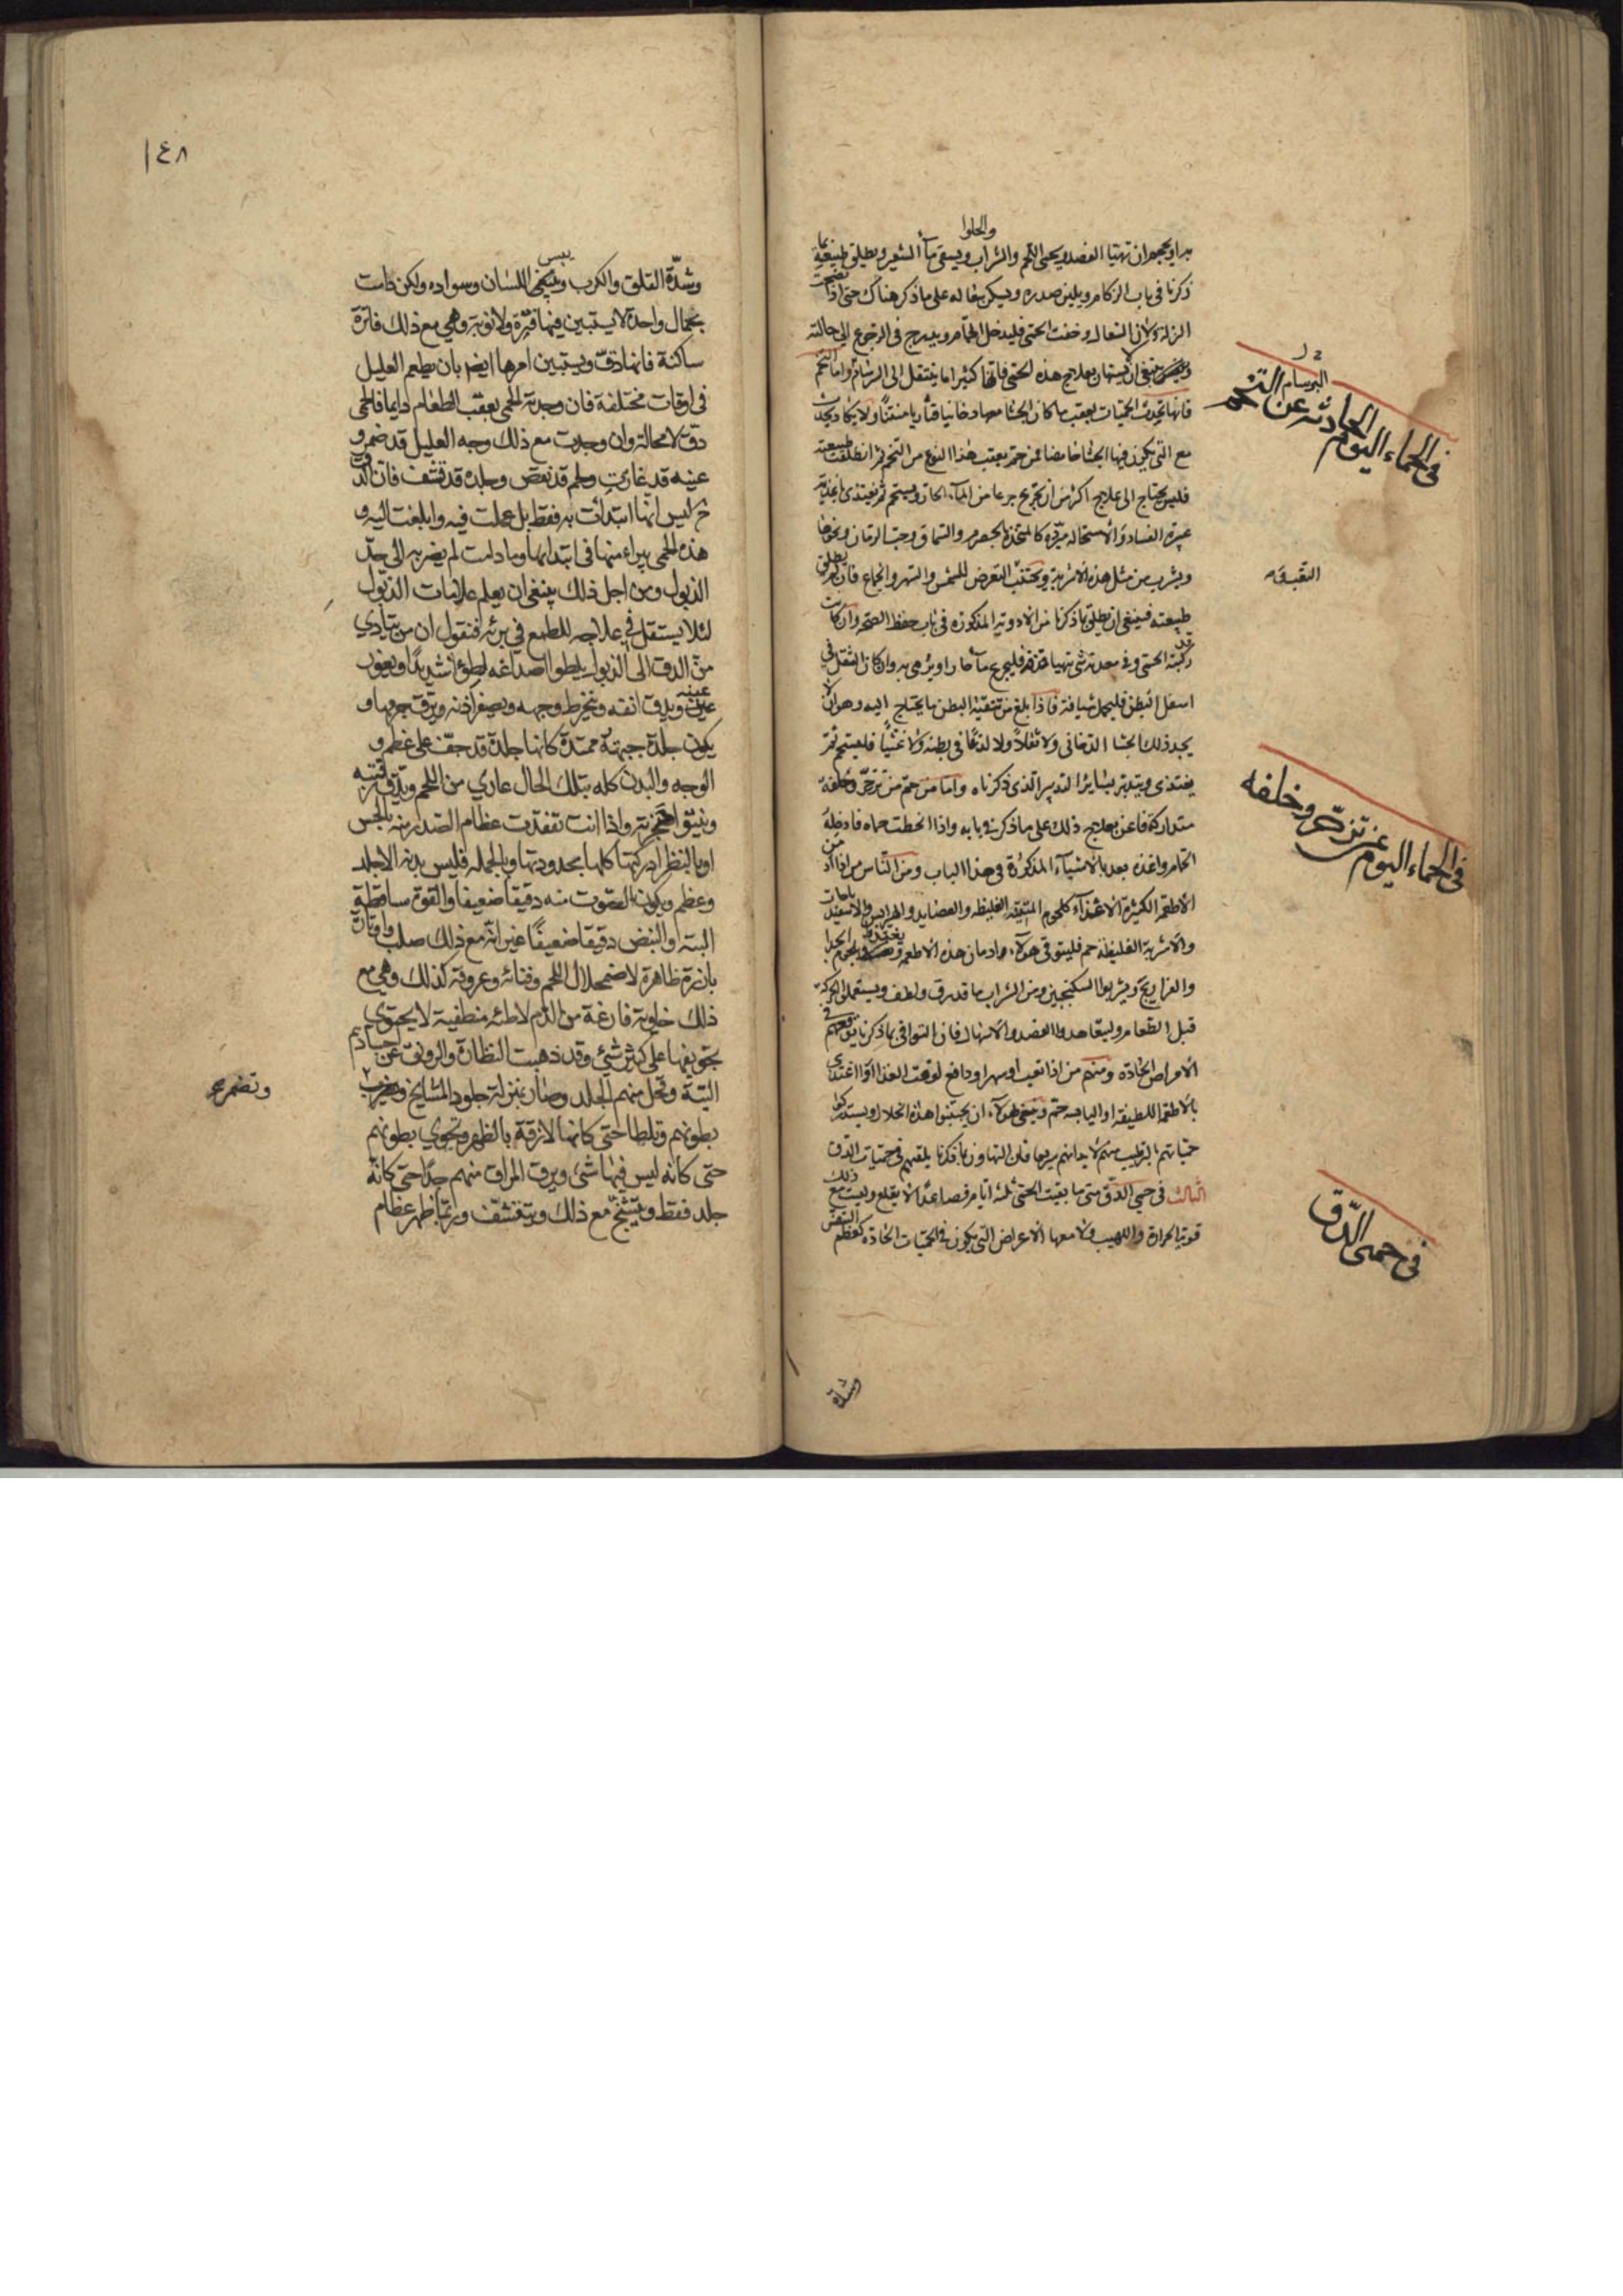 والحلوا
ان تهيا الفصد ويحمى اللحم والشراب ويسقى مآ الشعير ويطلق طبيعته بما
ذكرنا في باب الزكام ويلين صدره ويسكن سعاله على ما ذكر هناك حتى اذا نضجت
النزلة ولان السعال وخفت الحمى فليدخل الحمام ويدرج في الرجوع الى حالته
ينبغي ان لا يستهان بعلاج هذه الحمى فانها كثيرا ما ينتقل الى البرسام واما التخم
فانها يحدث الحميات بعقب ما كان الجشا معها دخانيا منتنا ولا يكاد يحدث
مع التي يكون فيها الجشا حامضا فمن حم بعقب هذا النوع من التخم فان انطلقت طبيعته
فليس يحتاج الى علاج اكثر من ان يتجرع جرعا من المآء الحار ويستحم ثم يغتذي باغذية
عسرة الفساد والاستحالة كالمتخذة بالحصرم والسماق وحب الرمان ونحوها
ويشرب من مثل هذه الاشربة ويجتنب التعرض للشمس والسهر والجماع فان لم يطلق
طبيعته فينبغي ان يطلق بما ذكرنا من الادوية المذكورة في باب حفظ الصحة وان كانت
قد ركبته الحمى وفي معدته شئ يتهيا قذفه فليجرع مآ حارا ويرمى به وان كان الثقل في
اسفل البطن فليحمل شيافة فاذا بلغ من تنقية البطن ما يحتاج اليه وهو ان لا
يجد ذلك الجشا الدخاني ولا ثقلا ولا لذعا في بطنه ولا غثيا فليستحم ثم
يغتذى ويتدبر بسائر التدبير الذي ذكرناه واما من حم من تزحر وخلفة
متداركة فاعن بعلاج ذلك على ما ذكر في بابه واذا انحطت حماه فادخله
الحمام واغذه بعد بالاشيآء المذكورة في هذا الباب ومن الناس من اذا اد من
الاطعمة الكثيرة الاغذآء كلحوم الغليظة والعصايد والهرايس والاسفيد باجات
والاشربة الغليظة حم فليتوقى هولآء ادمان هذه الاطعمة يغتذوا بلحوم الجدا
والفراريج ويشربوا السكنجبين ومن الشراب ما قد رق ولطف ويستعملوا الحركة
قبل الطعام وليتعاهدوا الفصد والاسهال فان التوانى بما ذكرنا يوقعهم في
الامراض الحادة ومنهم من اذا تعب او سهر او دافع لوقت الغذا او اغتذى
بالاطعمة اللطيفة او اليابسة حم وينبغي هولآء ان يجتنبوا هذه الخلال ويستدركوا
حمياتهم بالترطيب منهم لابدانهم سريعا فان التهاون بما ذكرنا يلقيهم في حميات الدق
الثالث في حمى الدق متى ما بقيت الحمى ثلثة ايام فصاعدا لا يقلع وليست مع ذلك
قوية الحرارة واللهيب ولا معها الاعراض التي يكون في الحميات الحادة كعظم النفس
البرسام
في الحماء اليوم الحادثه عن التخم
في الحماء اليوم عن تزحر وخلفه
في حمى الدق
وشدة
١٤٨
يبس
وشدة القلق والكرب اللسان وسواده ولكن كانت
بحال واحدة لا يستبين فيها فترة ولا نوبة وهي مع ذلك فاترة
ساكنة فانها دق ويستبين امرها ايضا بان يطعم العليل
في اوقات مختلفة فان وجدت الحمى بعقب الطعام دايما فالحمى
دق لا محالة وان وجدت مع ذلك وجه العليل قد ضمر و
عينيه قد غارت ولحمه قد نقص وجلده قد قشف فان الدق
ح ليس انها ابتدأت به فقط بل عملت فيه وابلغت اليه و
هذه الحمى يبراء منها في ابتدايها وما دامت لم يضر به الى حد
الذبول ومن اجل ذلك ينبغي ان يعلم علامات الذبول
لئلا يستقل في علاجه للطمع في برئه فنقول ان من يتادي
من الدق الى الذبول يلطوا اصداغه لطوئا شديدا ويغور
عينه ويدق انفه وينخرط وجهه ويصغر اذنه ويرق جرمها و
يكون جلدة جبهته ممتدة كانها جلدة قد جفت على عظم و
الوجه والبدن كله بتلك الحال عاري من اللحم ويدق رقبته
وينتوا حنجرته واذا انت تفقدت عظام الصدر منه بالجس
او بالنظر ادركتها كلها بحدودتها وبالجملة فليس بدنه الا جلد
وعظم ويكون الصوت منه دقيقا ضعيفا والقوة ساقطة
البتة والنبض دقيقا ضعيفا غير انه مع ذلك صلب واوتاره
بارزة ظاهرة لاضمحلال اللحم وفنائه وعروقه كذلك وهي مع
ذلك خاوية فارغة من الدم لاطئه منطفية لا يحتوي
تجويفها على كثير شئ وقد ذهبت النظارة والرونق عن اجسادهم
البتة وقحل منهم الجلد وصار بمنزلة جلود المشايخ
بطونهم وتلطا حتى كانها لازقة بالظهر وتخوي بطونهم
حتى كانه ليس فيها شئ ويرق المراق منهم جدا حتى كانه
جلد فقط ويتشنج مع ذلك ويتقشف وربما ظهر عظام